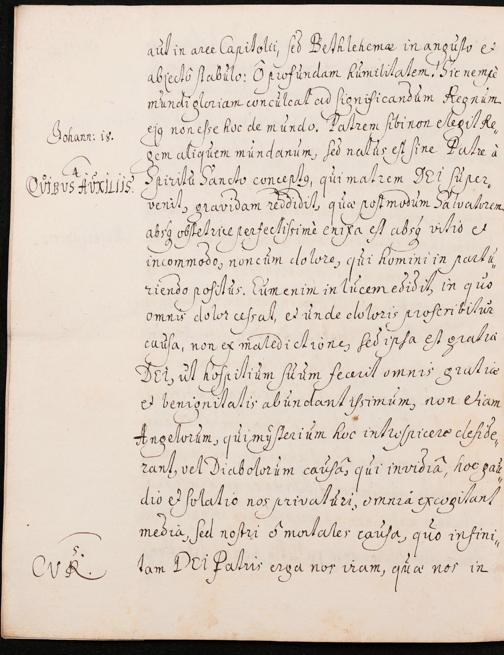 aut in arce Capitolii, sed Bethlehemæ in angusto et
abjecto stabulo: O profundam humilitatem! Sic nempe
mundi gloriam conculcat ad significandum Regnum
Johann: 18.
ejꝰ non esse hoc de mundo. Patrem sibi non elegit Re
gem aliquem mundanum, sed natus est sine Patre â
4.
QVIBVS AUXILIIS.
Spiritu Sancto conceptꝰ, qui matrem DEI super„
venit, gravidam reddidit, quæ postmodum Salvatorem
absq obstetrice perfectissime enixa est absq vitio et
incommodo, non cum dolore, qui homini in partu„
riendo positus. Eum enim in lucem edidit, in quo
omnis dolor cessat, et unde doloris proscribitur
causa, non ex maledictione, sed ipsa est gratia
DEI, ut hospitium suum fecerit omnis gratiæ
et benignitatis abundantissimum, non etiam
Angelorum, qui mysterium hoc introspicere deside„
rant, vel Diabolorum causâ, qui invidiâ, hoc gau„
dio et solatio nos privaturi, omnia excogitant
media, sed nostri ô mortales causa, quo infini„
5.
CVR.
tam DEI Patris erga nos iram, quæ nos in